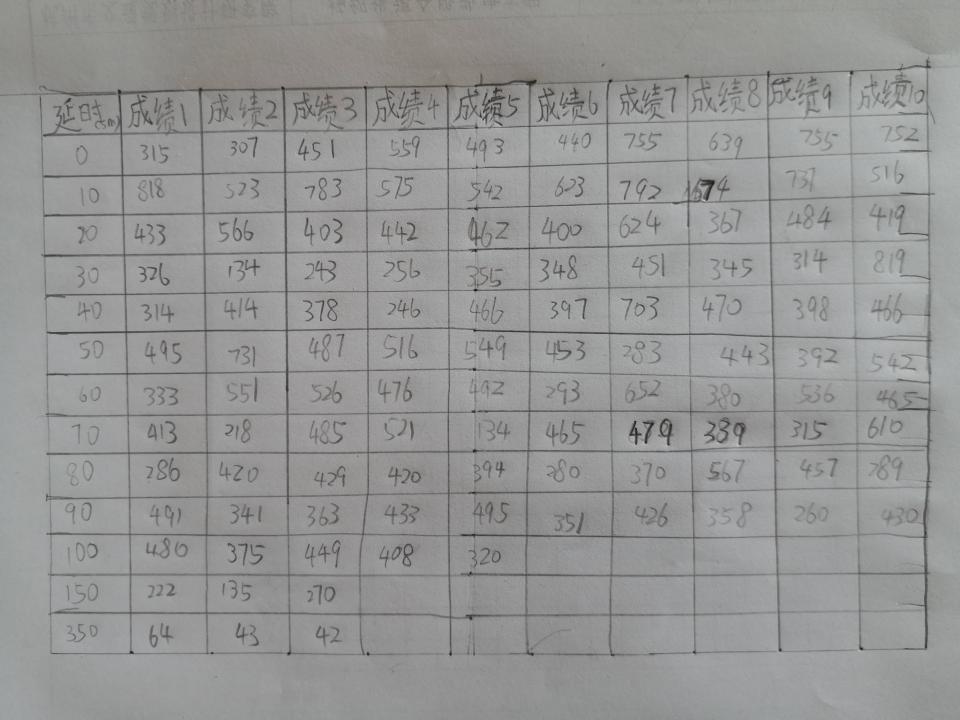 延时(ms) 成绩1 成绩2 成绩3 成绩4 成绩5 成绩6 成绩7 成绩8 成绩9 成绩10
0 315 307 451 559 493 440 755 639 755 752
10 818 523 783 575 542 623 792 674 737 516
20 433 566 403 442 462 400 624 367 484 419
30 326 134 243 256 355 348 451 345 314 819
40 314 414 378 246 466 397 703 470 398 466
50 495 731 487 516 549 453 283 443 392 542
60 333 551 526 476 492 293 652 380 536 465
70 413 218 485 521 134 465 479 339 315 610
80 286 420 429 420 394 280 370 567 457 289
90 491 341 363 433 495 351 426 358 260 430
100 480 375 449 408 320
150 222 135 270
350 64 43 42